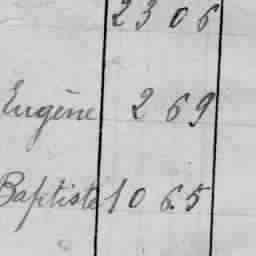 2306
Eugène 269
Baptiste 1065